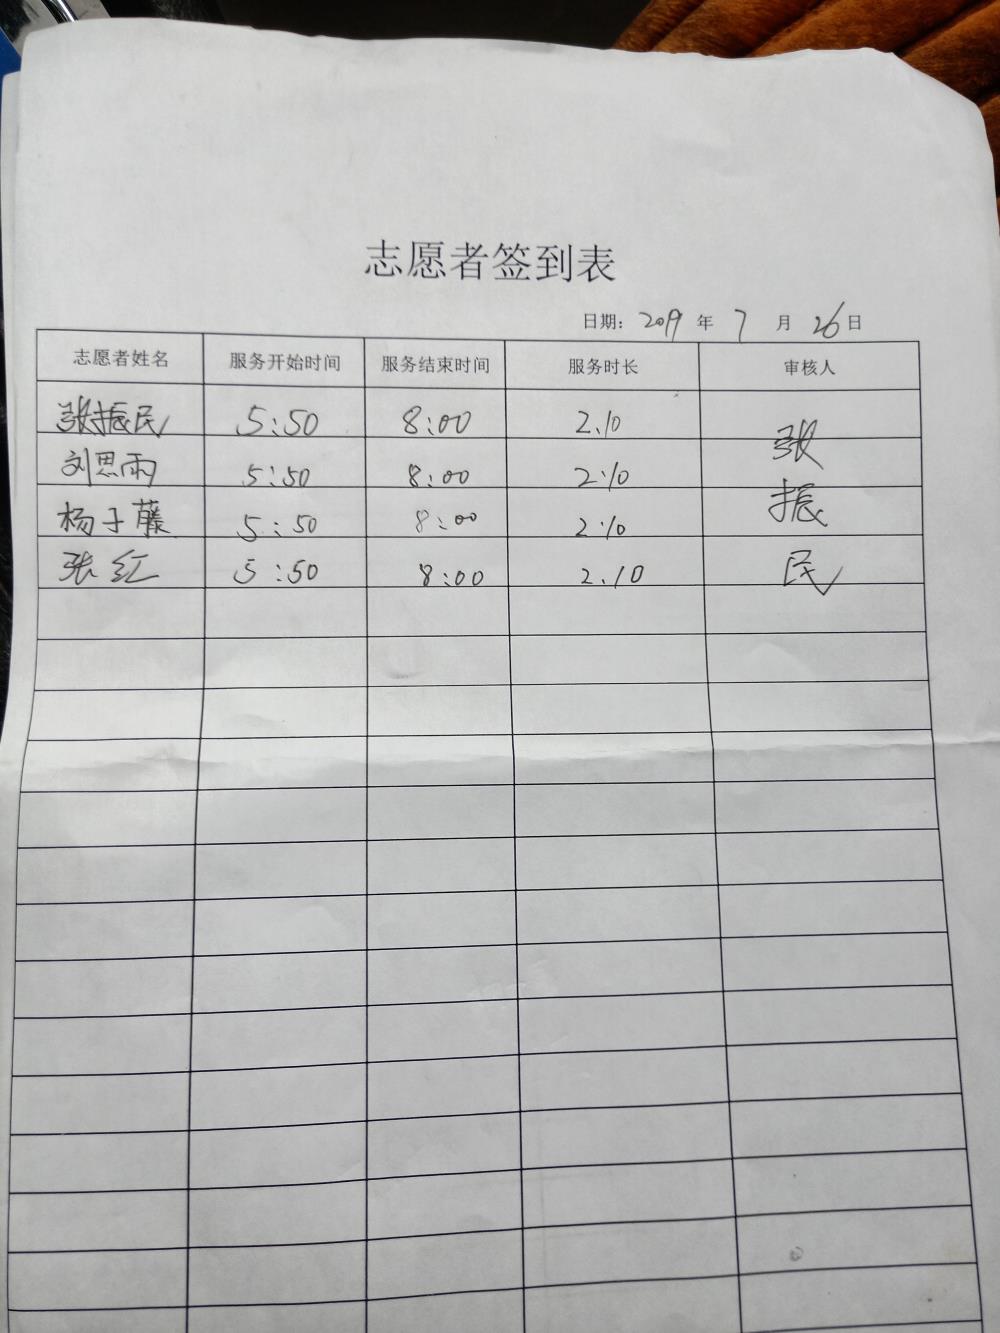 志愿者签到表
日期：2019 年 7 月 26 日
志愿者姓名 服务开始时间 服务结束时间 服务时长 审核人
张振民 5:50 8:00 2.10 张
刘思雨 5:50 8:00 2:10 振
杨子藤 5:50 8:00 2:10
张红 5:50 8:00 2.10 民